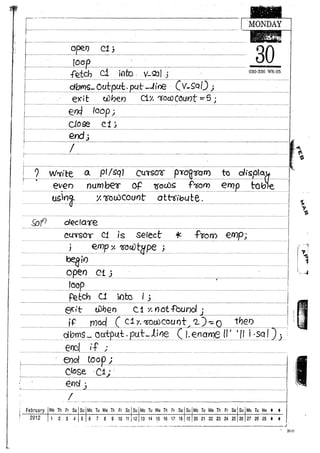 MONDAY
30
030-336 WK-05
open c1;
loop
fetch c1 into v_sal;
dbms_output.put_line (v_sal);
exit when c1%rowcount = 5;
end loop;
close c1;
end;
/
? Write a pl/sql cursor program to display
even number of rows from emp table
using %rowcount attribute.
Sol? declare
cursor c1 is select * from emp;
i emp%rowtype;
begin
open c1;
loop
fetch c1 into i;
exit when c1%notfound;
if mod (c1%rowcount, 2) = 0 then
dbms_output.put_line (i.ename ||' '|| i.sal);
end if;
end loop;
close c1;
end;
/
FEB
MAR
February Mo Th Fr Sa Su Mo Tu We Th Fr Sa Su Mo Tu We Th Fr Sa Su Mo Tu We Th Fr Sa Su Mo Tu We
2012 1 2 3 4 5 6 7 8 9 10 11 12 13 14 15 16 17 18 19 20 21 22 23 24 25 26 27 28 29